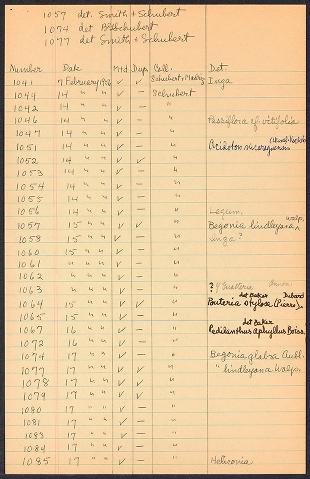 1057 det. Smith + Schubert
1074 det BGSchubert
1077 det Smith + Schubert
Number Date Mtd Dup. Coll. Det
1041 7 February 1976 ✓ ✓ Schubert, Madrig Inga
1044 14 " " ✓ — Schubert
1042 14 " " ✓ — "
1046 14 " " ✓ — " Passiflora cf vitifolia
1047 14 " " ✓ — "
1051 14 " " ✓ — "
1052 14 " " ✓ ✓ "
1053 14 " " ✓ — "
1054 14 " " ✓ — "
1055 14 " " ✓ — "
1056 14 " " ✓ — " Legum.
1057 15 " " ✓ ✓ " Begonia lindleyana Walp.
1058 15 " " ✓ — " Inga?
1060 15 " " ✓ — "
1061 " " " ✓ — "
1062 " " " ✓ — "
1063 " " " ✓ — " ?
det Baker Dubard
1064 15 " " ✓ ✓ " Pouteria stylosa (Pierre)
1065 15 " " ✓ — "
det Baker
1067 16 " " ✓ — " Pedilanthus aphyllus Boiss.
1072 16 " " ✓ — "
1074 17 " " ✓ — " Begonia glabra Aubl.
1077 17 " " ✓ ✓ " " lindleyana Walp.
1078 17 " " ✓ ✓ "
1079 17 " " ✓ ✓ "
1080 17 " " ✓ — "
1081 17 " " ✓ — "
1083 17 " " ✓ — "
1084 17 " " ✓ — "
1085 17 " " ✓ — " Heliconia